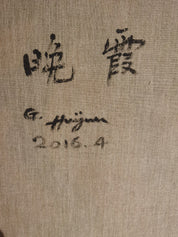 晚霞
G. Huijun
2016.4